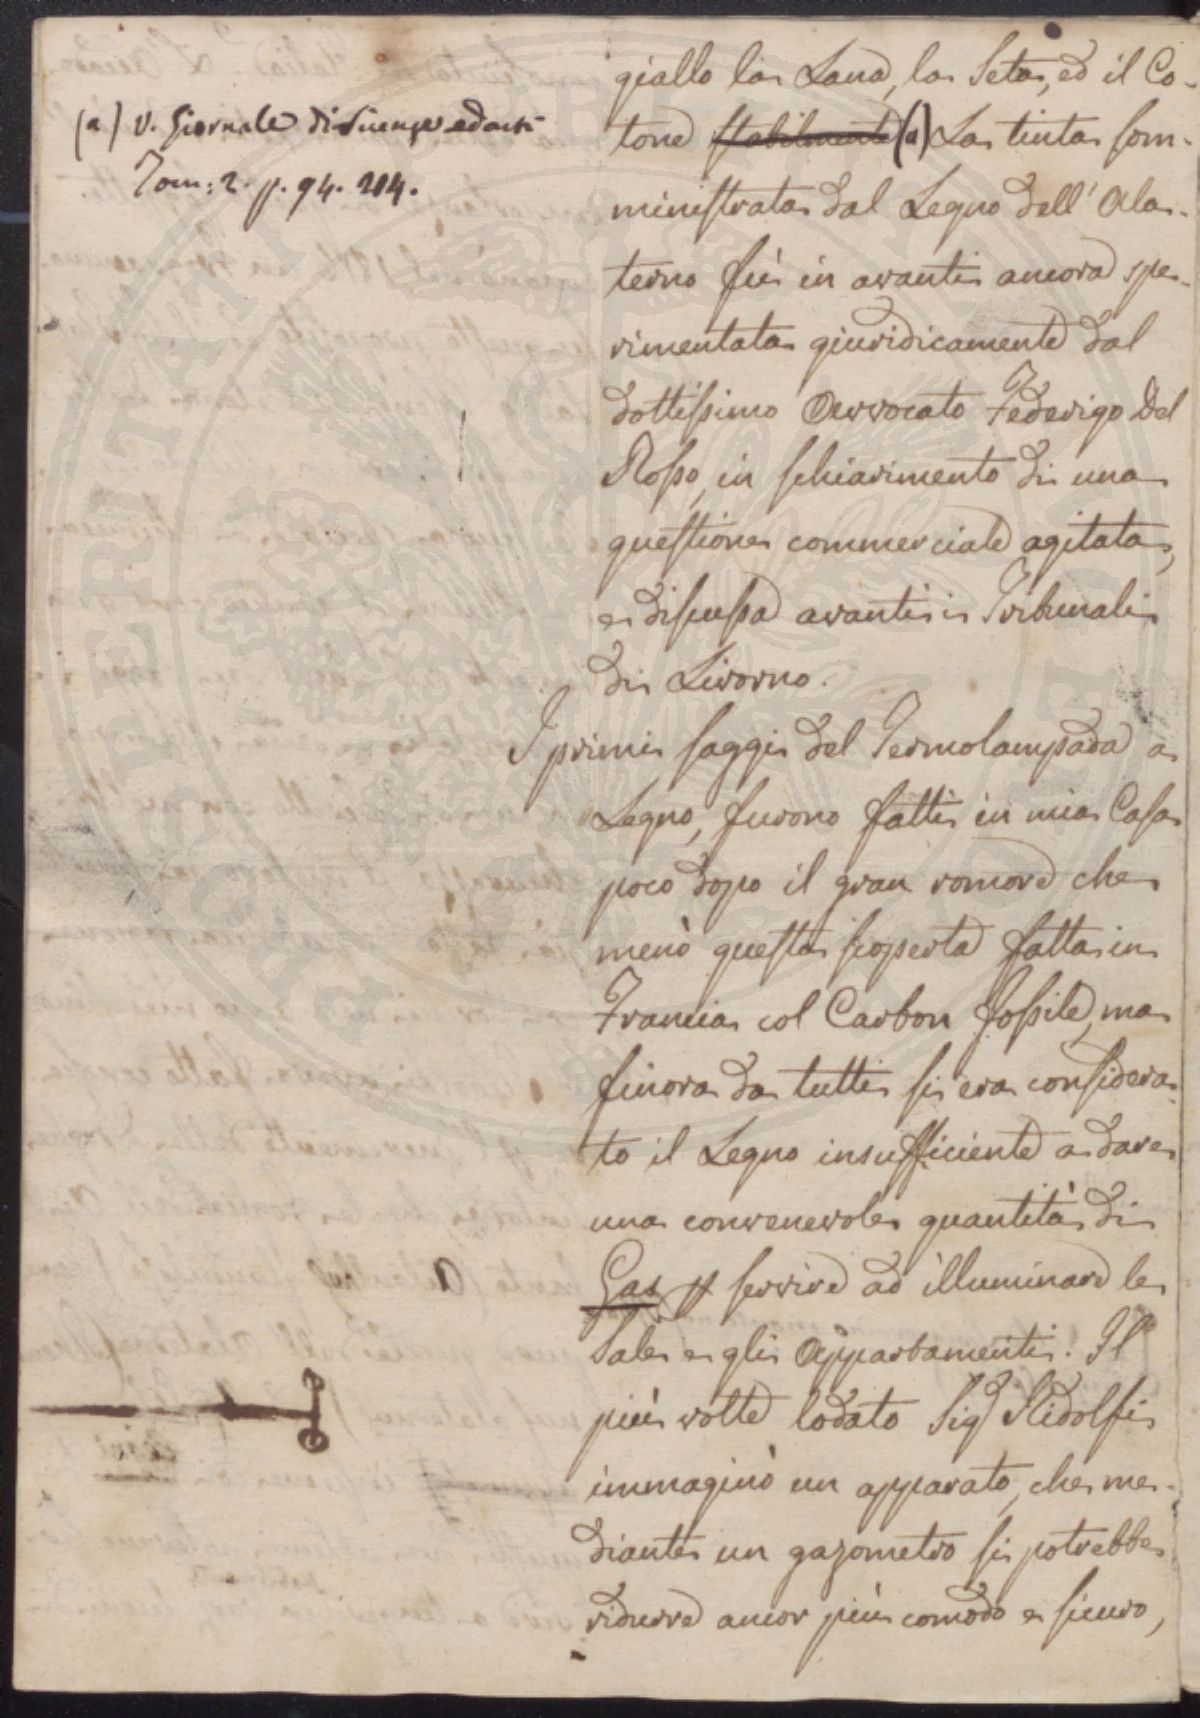 (a) v. Giornale di Scienze ed arti
Tom: 2. p. 94. 214.
giallo la Lana, la Seta, ed il Co-
tone stabilmente (a) La tinta som-
ministrata dal Legno dell' Ala-
terno fù in avanti ancora spe-
rimentata giuridicamente dal
dottissimo Avvocato Federigo Del
Rosso, in schiarimento di una
questione commerciale agitata,
e discussa avanti i Tribunali
di Livorno.
I primi saggi del Termolampada a
Legno, furono fatti in mia Casa
poco dopo il gran romore che
menò questa scoperta fatta in
Francia col Carbon fossile, ma
finora da tutti si era considera-
to il Legno insufficiente a dare
una convenevole quantità di
Gas p servire ad illuminare le
Sale e gli Appartamenti. Il
più volte lodato Sig Ridolfi
immaginò un apparato, che me-
diante un gazometro si potrebbe
ridurre ancor più comodo e sicuro,